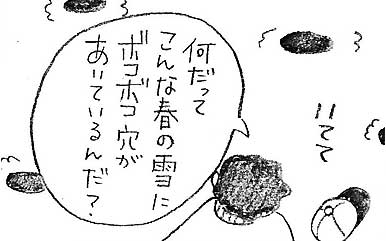 何だって
こんな春の雪に
ボコボコ穴が
あいているんだ？
いてて